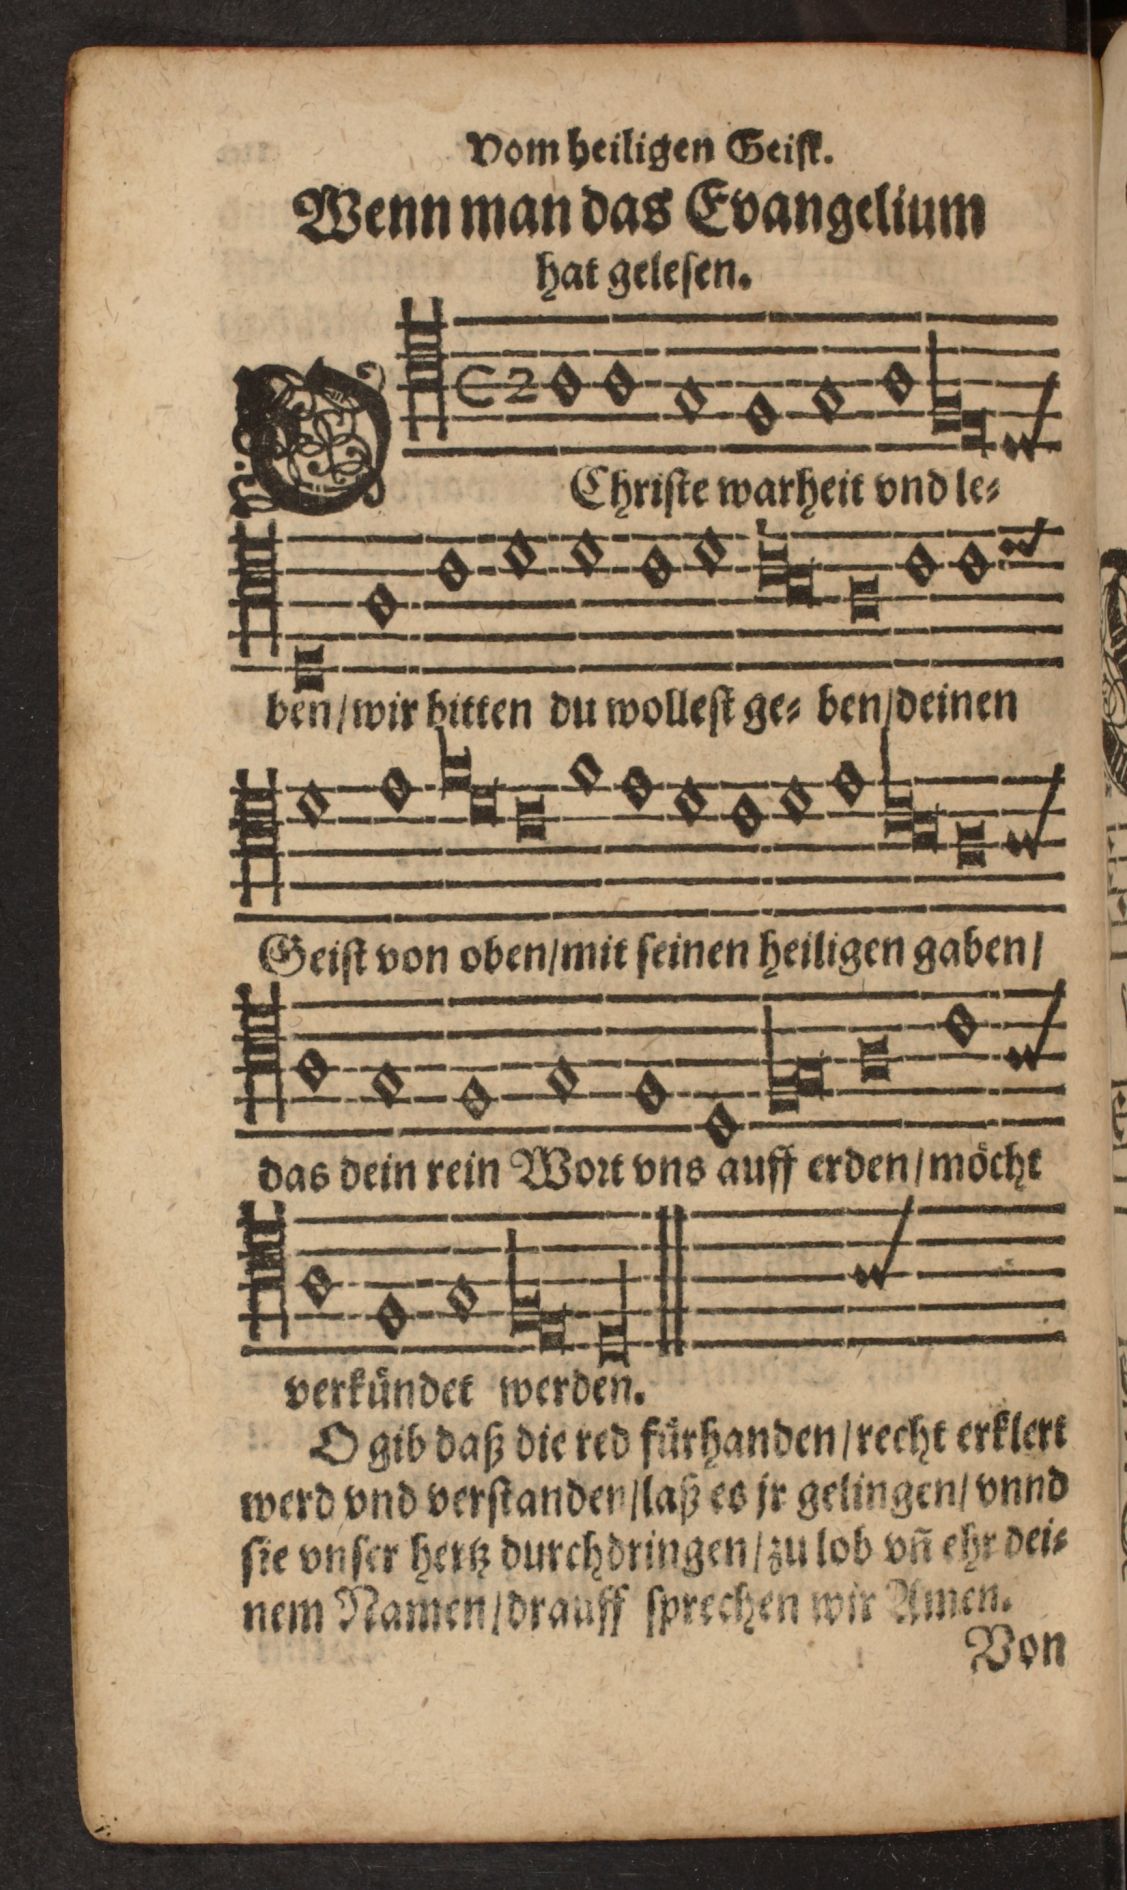 Vom heiligen Geist.
Wenn man das Evangelium
hat gelesen.
O
Christe warheit vnd le⸗
ben/wir bitten du wollest ge⸗ ben/deinen
Geist von oben/mit seinen heiligen gaben/
das dein rein Wort vns auff erden/möcht
verkündet werden.
O gib daß die red fürhanden/recht erklert
werd vnd verstanden/laß es jr gelingen/vnnd
sie vnser hertz durchdringen/zu lob vn̄ ehr dei⸗
nem Namen/drauff sprechen wir Amen.
Von